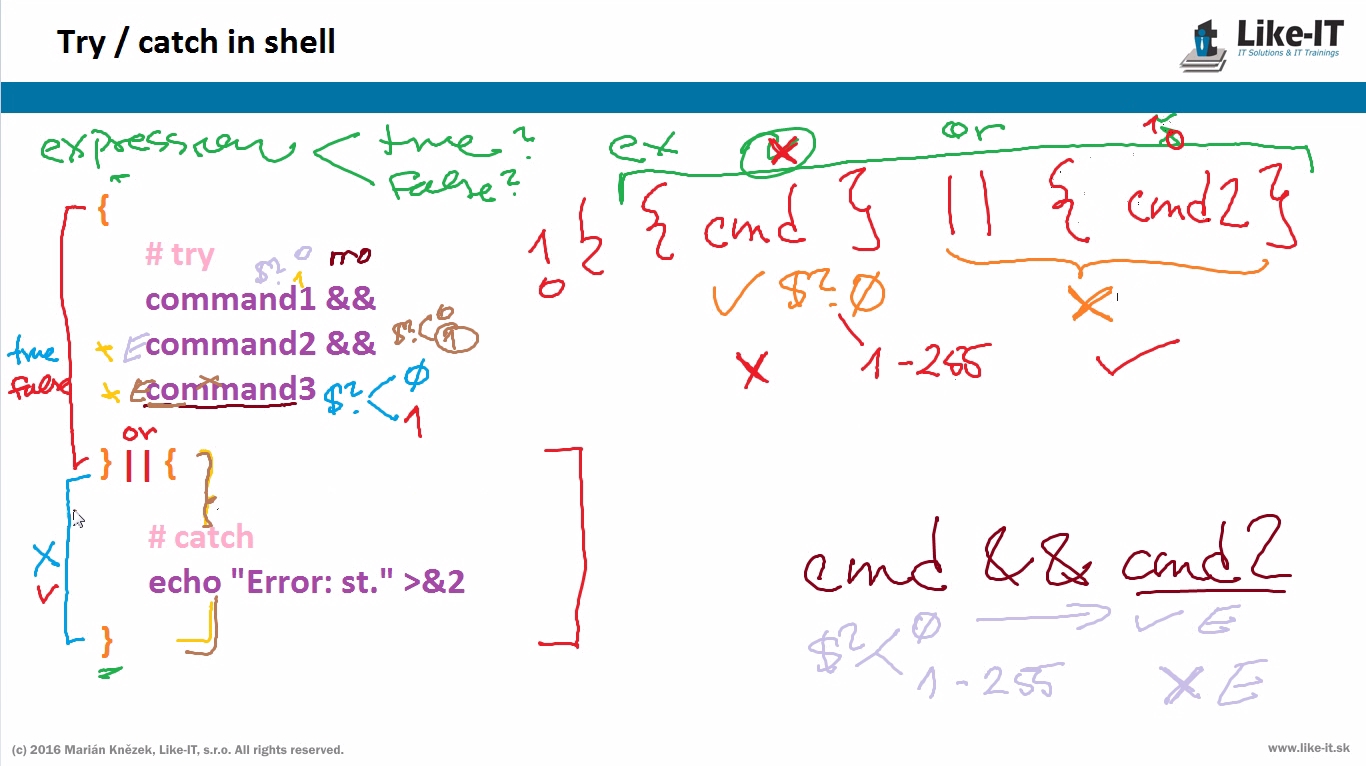 Try / catch in shell
Like-IT
IT Solutions & IT Trainings
expression < true?
false?
ex
or
1 0
{
1
0
{ cmd } || { cmd2 }
# try
$? 0 no
1
command1 &&
✓ $? Ø
X
true
E command2 && $? < 0
false
E command3 $? < Ø
1
X 1-255 ✓
or
} || {
# catch
X
echo "Error: st." >&2
✓
}
cmd && cmd2
$? < Ø → ✓ E
1-255 X E
(c) 2016 Marián Knězek, Like-IT, s.r.o. All rights reserved.
www.like-it.sk